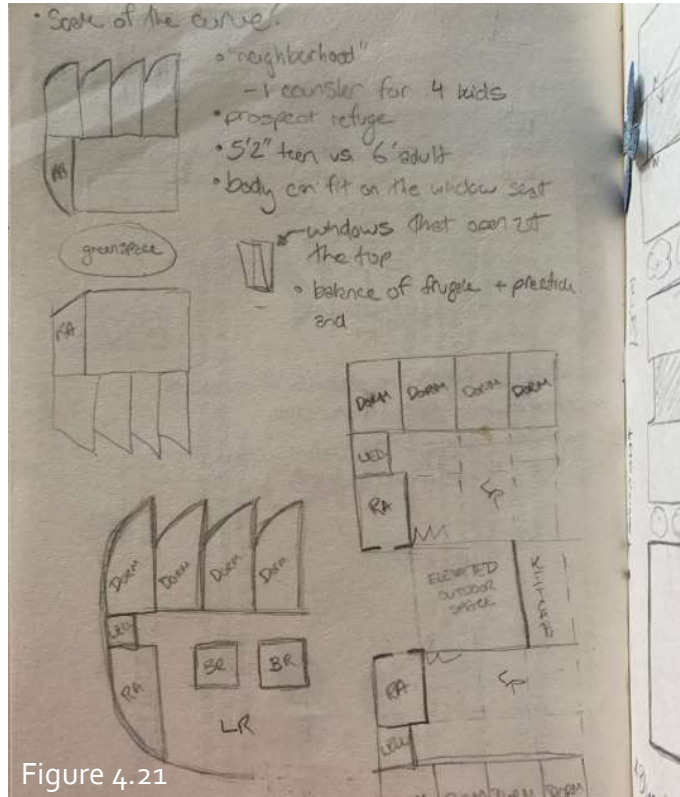 • Scale of the curve!
• "neighborhood"
- 1 counsler for 4 kids
• prospect refuge
• 5'2" teen vs 6' adult
• body can fit on the window seat
windows that open at
the top
• balance of frugale +
and
RA
greenspace
RA
DORM DORM DORM DORM
RA
ELEVATED
OUTDOOR
SPACE
KITCHEN
DORM DORM DORM DORM
BR BR
RA
LR
RA
DORM DORM DORM DORM
Figure 4.21